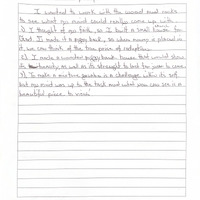 I wanted to work with the wood and rocks
to see what my mind could really come up with.
1) I thought of my faith, so I built a small house for
God. I made it a piggy bank, so when money is placed in
it, we can think of the true price of redemption.
2) I made a wooden piggy bank house that would show
its beauty, as well as its strength to last for years to come.
3) To make a mixture possible is a challenge within its self,
but my mind was up to the test and what you can see is a
beautiful piece to view.